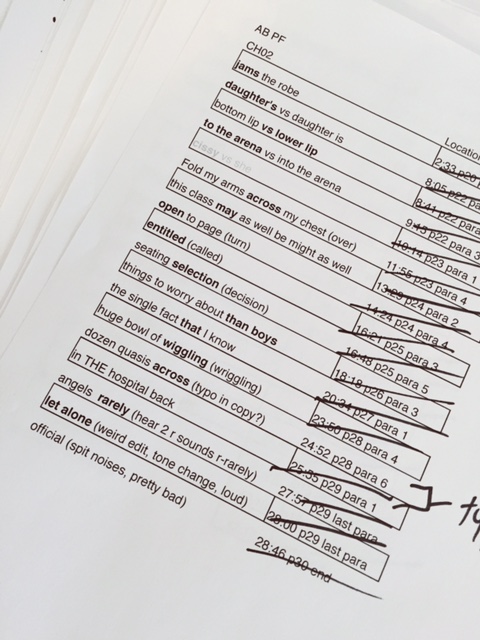 AB PF
CH02
Location
jams the robe 2:33
daughter's vs daughter is 8:05 p22 para
bottom lip vs lower lip 8:41 p22 para
to the arena vs into the arena 9:45 p22 para 3
cissy vs she 10:14 p23 para 1
Fold my arms across my chest (over) 11:55 p23 para 4
this class may as well be might as well 13:29 p24 para 2
open to page (turn) 14:24 p24 para 4
entitled (called) 16:21 p25 para 3
seating selection (decision) 16:48 p25 para 5
things to worry about than boys 18:18 p26 para 3
the single fact that I know 20:34 p27 para 1
huge bowl of wiggling (wriggling) 23:50 p28 para 4
dozen quasis across (typo in copy?) 24:52 p28 para 6
in THE hospital back 25:35 p29 para 1
angels rarely (hear 2 r sounds r-rarely) 27:57 p29 last para
let alone (weird edit, tone change, loud) 28:00 p29 last para
official (spit noises, pretty bad) 28:46 p30 end